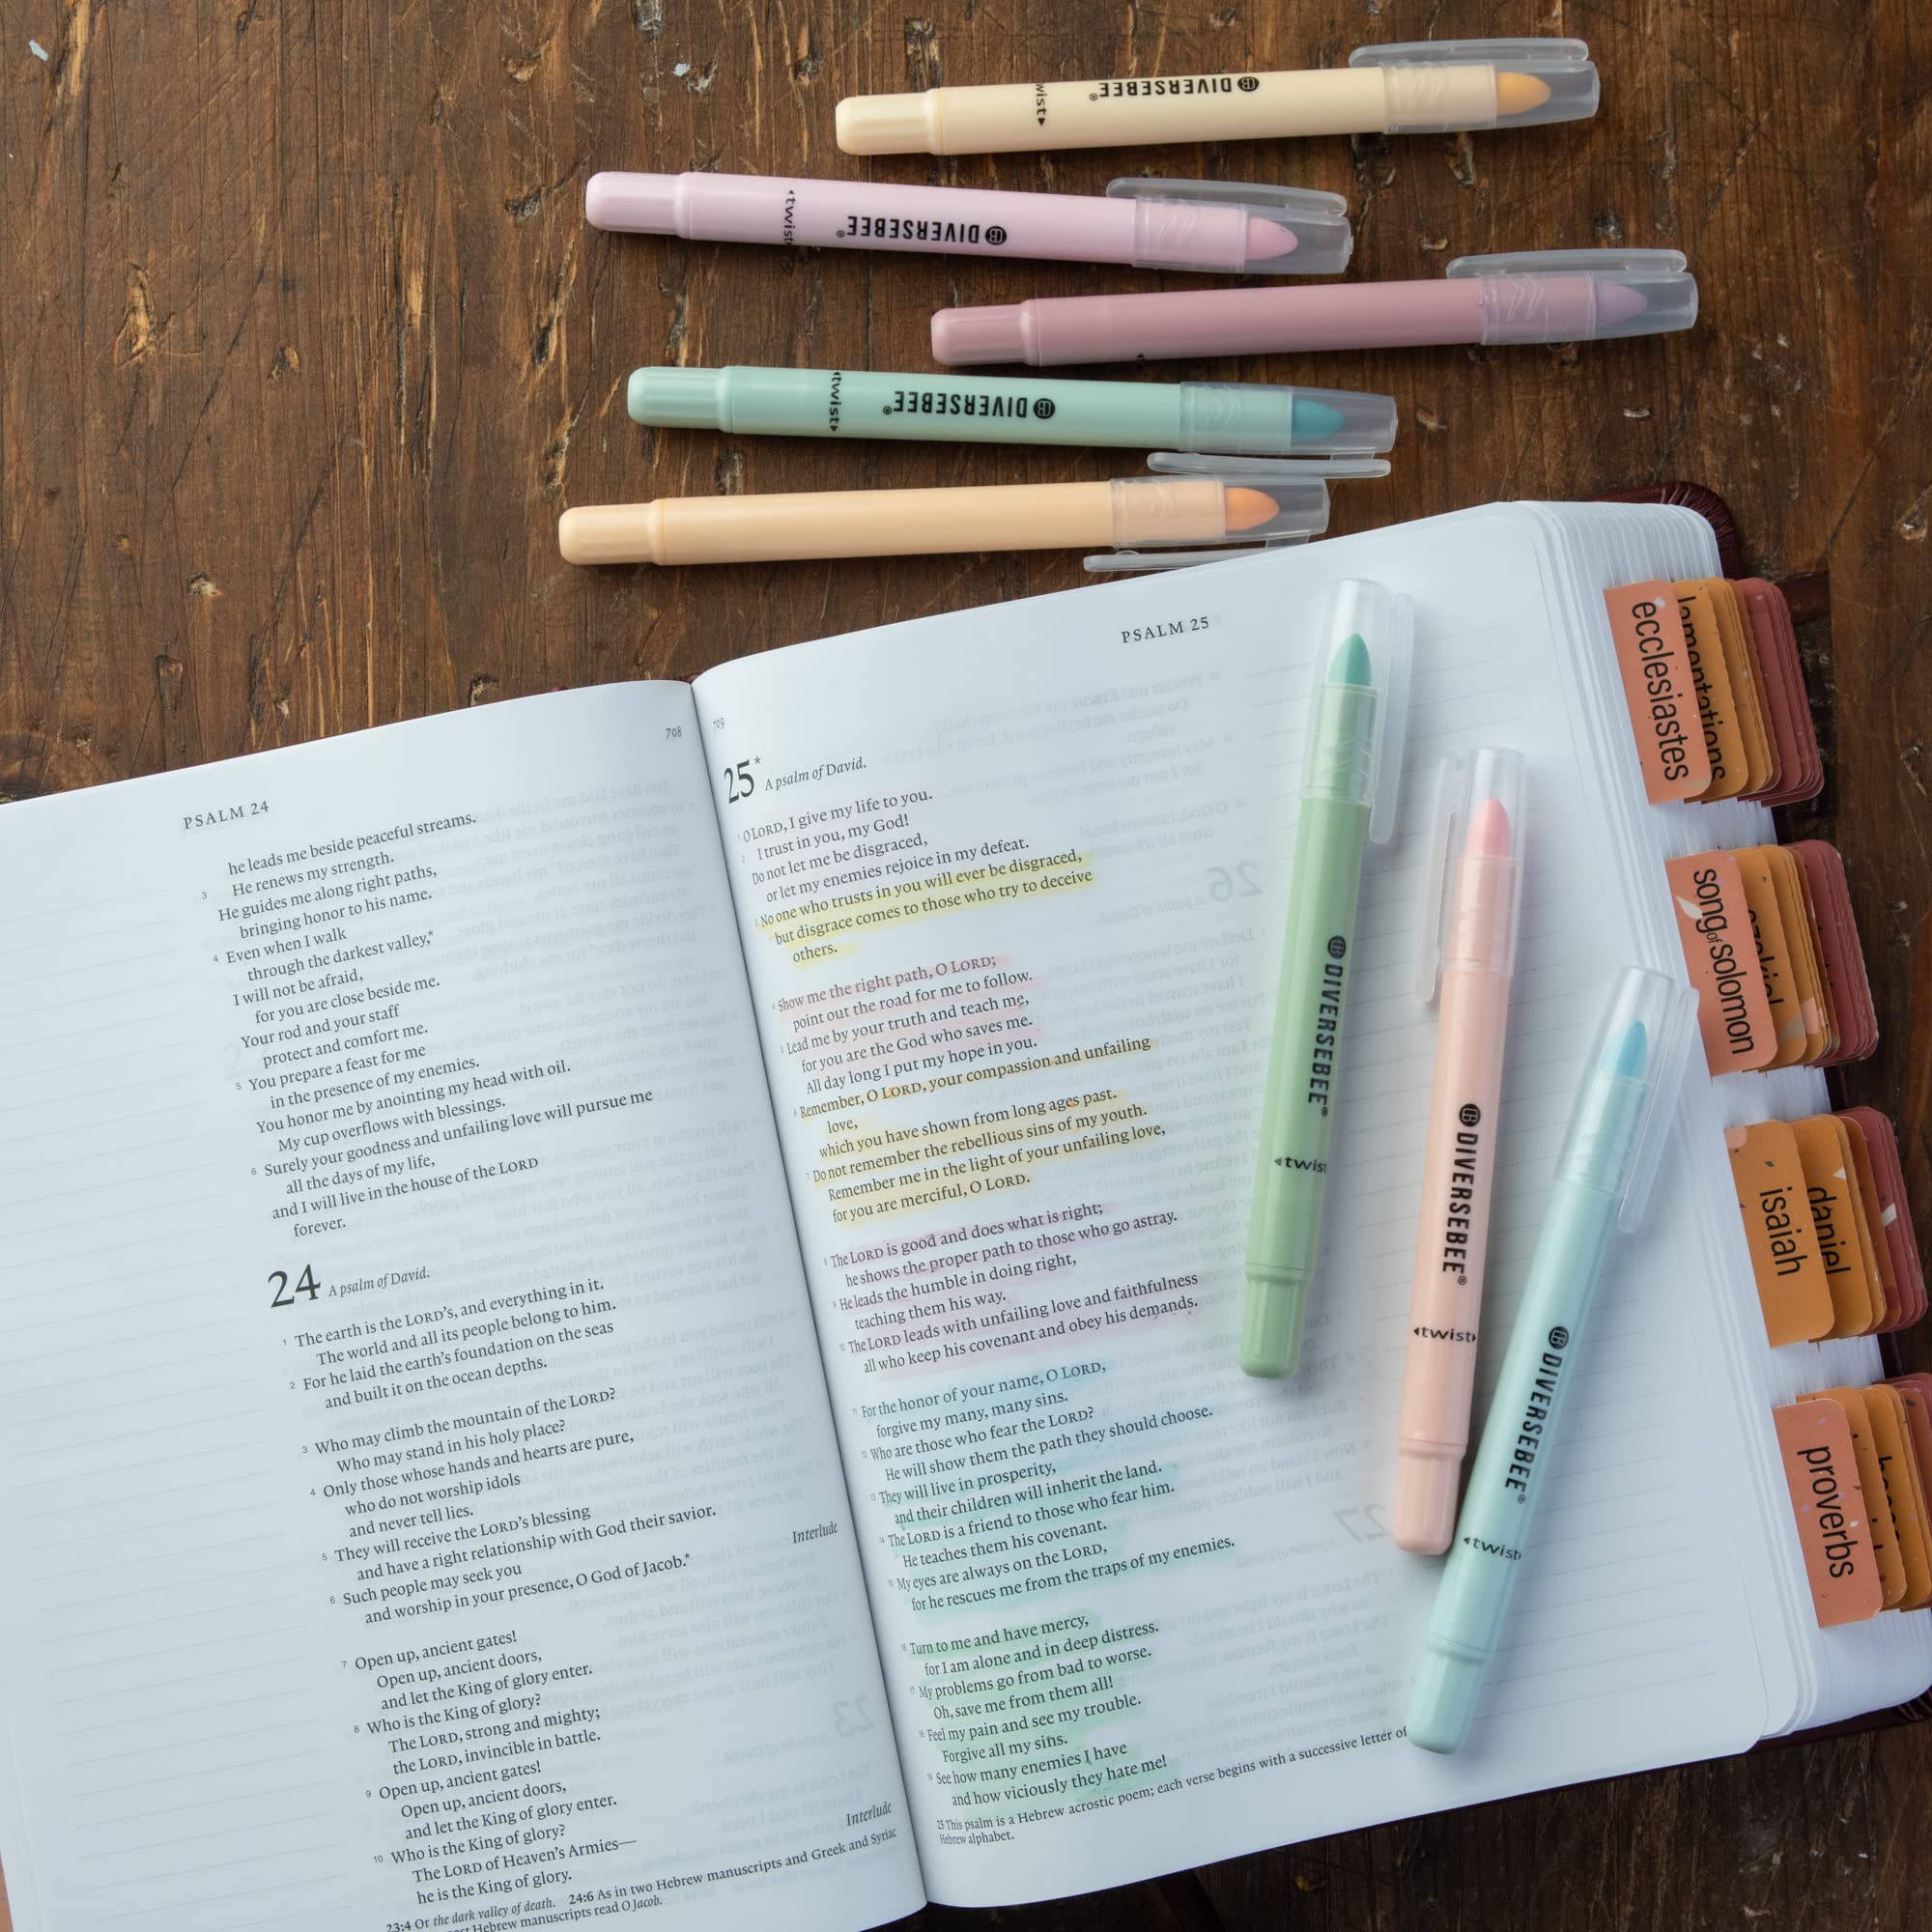 DIVERSEBEE®
twist
DIVERSEBEE®
twist
DIVERSEBEE®
PSALM 24
708
he leads me beside peaceful streams.
3 He renews my strength.
He guides me along right paths,
bringing honor to his name.
4 Even when I walk
through the darkest valley,*
I will not be afraid,
for you are close beside me.
Your rod and your staff
protect and comfort me.
5 You prepare a feast for me
in the presence of my enemies.
You honor me by anointing my head with oil.
My cup overflows with blessings.
6 Surely your goodness and unfailing love will pursue me
all the days of my life,
and I will live in the house of the LORD
forever.
24 A psalm of David.
1 The earth is the LORD's, and everything in it.
The world and all its people belong to him.
2 For he laid the earth's foundation on the seas
and built it on the ocean depths.
3 Who may climb the mountain of the LORD?
Who may stand in his holy place?
4 Only those whose hands and hearts are pure,
who do not worship idols
and never tell lies.
5 They will receive the LORD's blessing
and have a right relationship with God their savior.
6 Such people may seek you
and worship in your presence, O God of Jacob.*
Interlude
7 Open up, ancient gates!
Open up, ancient doors,
and let the King of glory enter.
8 Who is the King of glory?
The LORD, strong and mighty;
the LORD, invincible in battle.
9 Open up, ancient gates!
Open up, ancient doors,
and let the King of glory enter.
10 Who is the King of glory?
The LORD of Heaven's Armies—
he is the King of glory.
Interlude
23:4 Or the dark valley of death. 24:6 As in two Hebrew manuscripts and Greek and Syriac
Hebrew manuscripts read O Jacob.
PSALM 25
709
25* A psalm of David.
1 O LORD, I give my life to you.
2 I trust in you, my God!
Do not let me be disgraced,
or let my enemies rejoice in my defeat.
3 No one who trusts in you will ever be disgraced,
but disgrace comes to those who try to deceive
others.
4 Show me the right path, O LORD;
point out the road for me to follow.
5 Lead me by your truth and teach me,
for you are the God who saves me.
All day long I put my hope in you.
6 Remember, O LORD, your compassion and unfailing
love,
which you have shown from long ages past.
7 Do not remember the rebellious sins of my youth.
Remember me in the light of your unfailing love,
for you are merciful, O LORD.
8 The LORD is good and does what is right;
he shows the proper path to those who go astray.
9 He leads the humble in doing right,
teaching them his way.
10 The LORD leads with unfailing love and faithfulness
all who keep his covenant and obey his demands.
11 For the honor of your name, O LORD,
forgive my many, many sins.
12 Who are those who fear the LORD?
He will show them the path they should choose.
13 They will live in prosperity,
and their children will inherit the land.
14 The LORD is a friend to those who fear him.
He teaches them his covenant.
15 My eyes are always on the LORD,
for he rescues me from the traps of my enemies.
16 Turn to me and have mercy,
for I am alone and in deep distress.
17 My problems go from bad to worse.
Oh, save me from them all!
18 Feel my pain and see my trouble.
Forgive all my sins.
19 See how many enemies I have
and how viciously they hate me!
25 This psalm is a Hebrew acrostic poem; each verse begins with a successive letter of
Hebrew alphabet.
DIVERSEBEE®
twist
DIVERSEBEE®
twist
DIVERSEBEE®
twist
ecclesiastes
lamentations
song of solomon
isaiah
daniel
proverbs